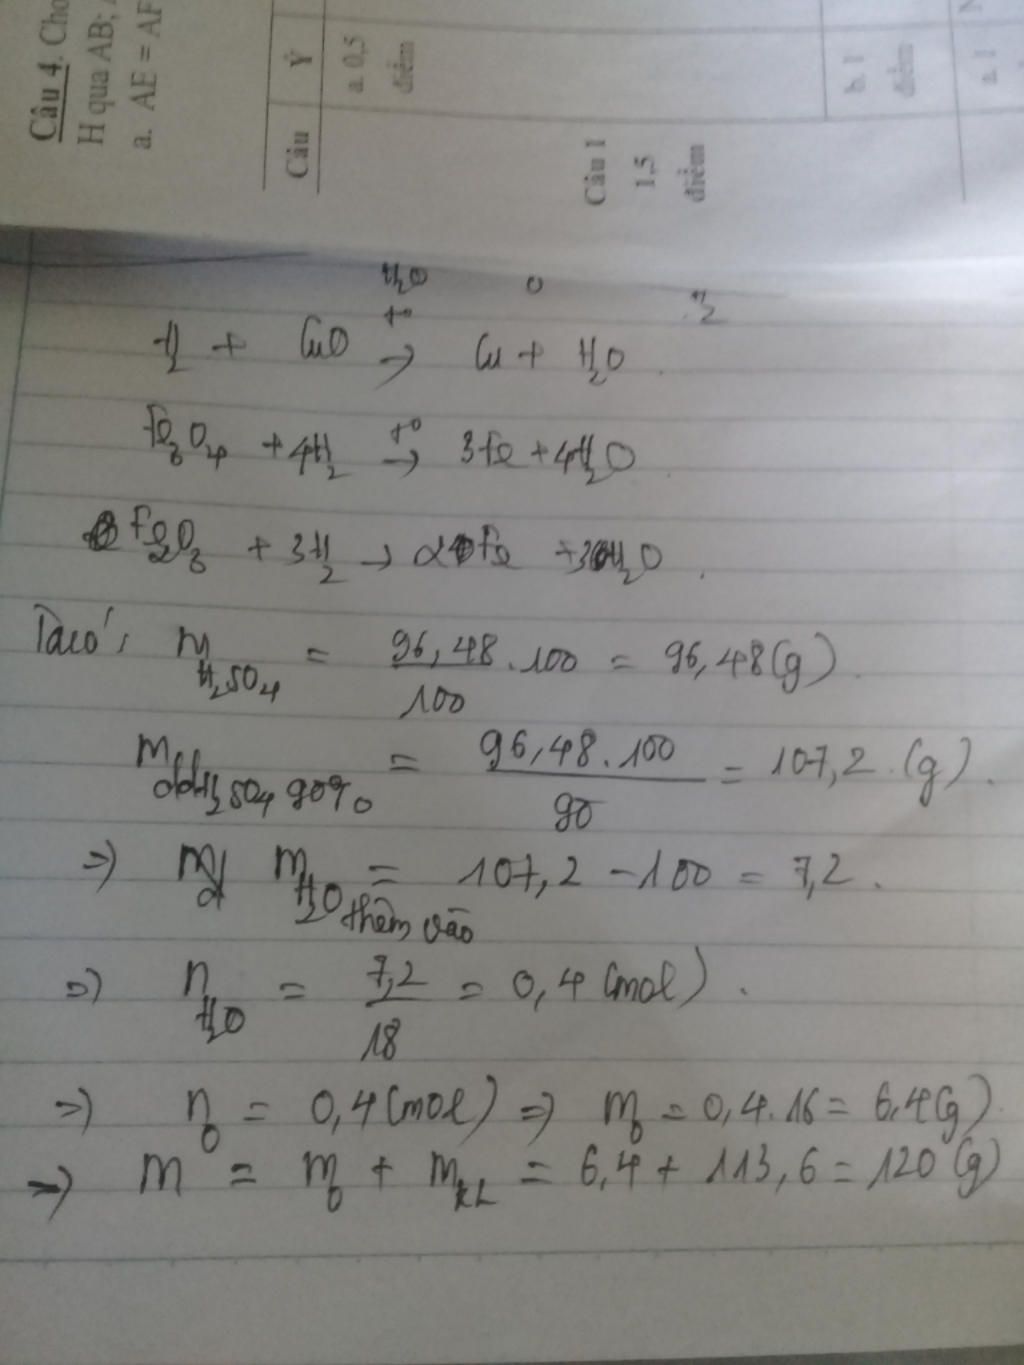 Câu 4. Cho
H qua AB;
a. AE = AF
Câu Ý
a. 0,5
điểm
Câu 1
1,5
điểm
b. 1
điểm
a. 1
H2O O H2
H2 + CuO t° → Cu + H2O.
Fe3O4 + 4H2 t° → 3Fe + 4H2O
Fe2O3 + 3H2 → 2Fe + 3H2O.
Ta có: mH2SO4 = 96,48.100/100 = 96,48(g).
mddH2SO4 90% = 96,48.100/90 = 107,2.(g).
=> mH2O thêm vào = 107,2 - 100 = 7,2.
=> nH2O = 7,2/18 = 0,4 (mol).
=> nO = 0,4(mol) => mO = 0,4.16 = 6,4(g).
=> m = mO + mKL = 6,4 + 113,6 = 120(g)